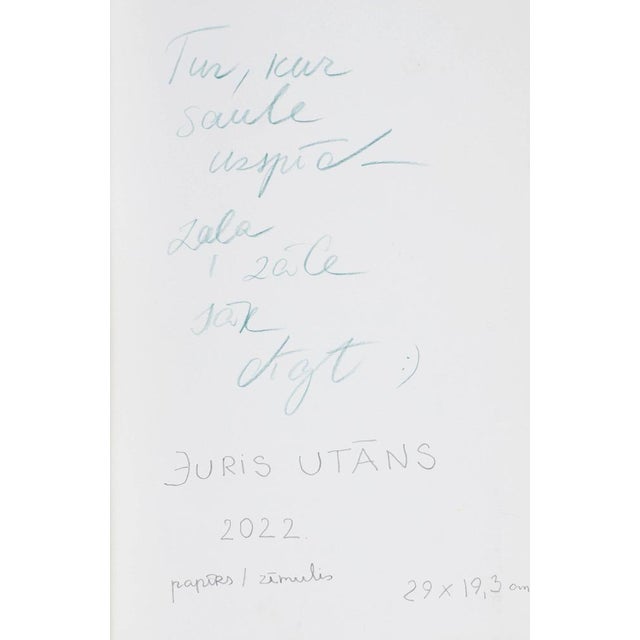 Tur, kur
saule
uzspīd —
zaļa
zāle
sāk
dīgt :)
JURIS UTĀNS
2022.
papīrs / zīmulis
29 x 19,3 cm